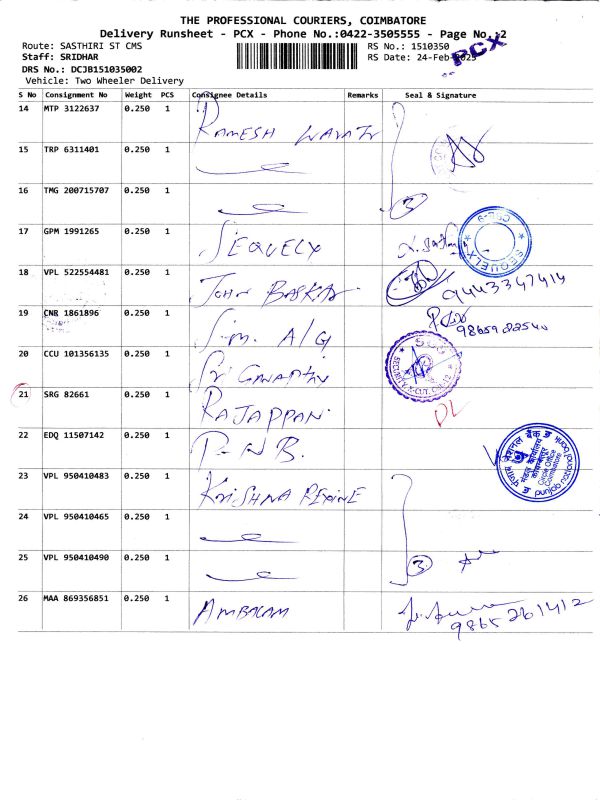 THE PROFESSIONAL COURIERS, COIMBATORE
Delivery Runsheet - PCX - Phone No.:0422-3505555 - Page No.:2
PCX
Route: SASTHIRI ST CMS
RS No.: 1510350
Staff: SRIDHAR
RS Date: 24-Feb-2025
DRS No.: DCJB151035002
Vehicle: Two Wheeler Delivery
S No Consignment No Weight PCS Consignee Details Remarks Seal & Signature
14 MTP 3122637 0.250 1 RAMESH
15 TRP 6311401 0.250 1
16 TMG 200715707 0.250 1 3
17 GPM 1991265 0.250 1 SEQUELX
SEQUELX
18 VPL 522554481 0.250 1 JOHN BASKAR 9443347414
19 CNR 1861896 0.250 1 S.M. A/G
20 CCU 101356135 0.250 1 Sri GANAPATHY
21 SRG 82661 0.250 1 RAJAPPAN DL
22 EDQ 11507142 0.250 1 P.N.B.
पंजाब नैशनल बैंक punjab national bank
मंडल कार्यालय
Circle Office
Coimbatore
23 VPL 950410483 0.250 1 KRISHNA REXINE
24 VPL 950410465 0.250 1
25 VPL 950410490 0.250 1 3
26 MAA 869356851 0.250 1 AMBALAM
9865261412